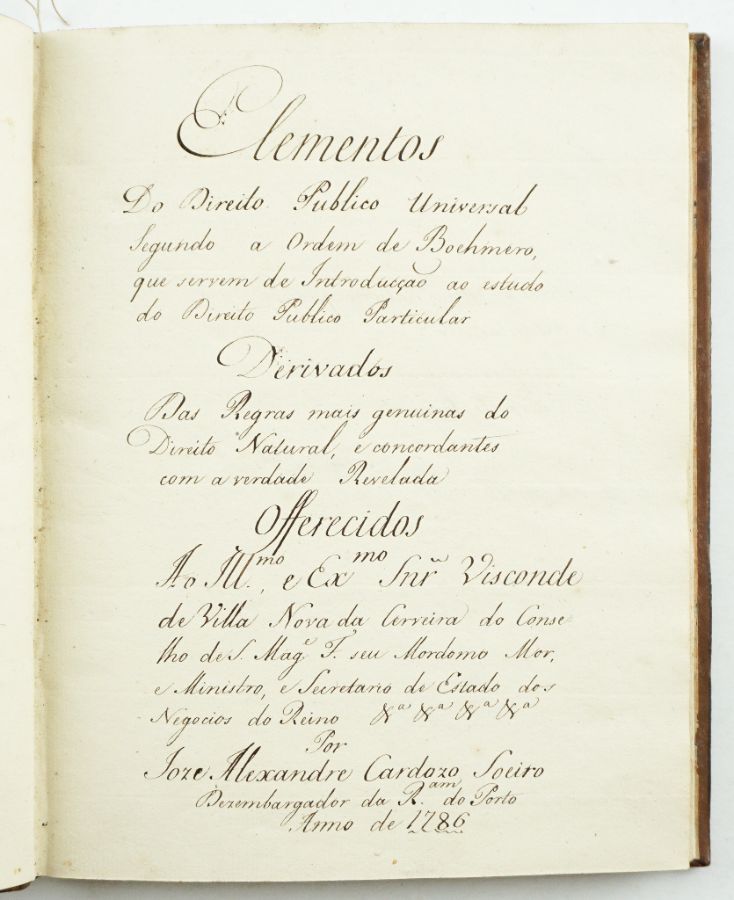 Elementos
Do Direito Publico Universal
Segundo a Ordem de Boehmero,
que servem de Introducção ao estudo
do Direito Publico Particular
Derivados
Das Regras mais genuinas do
Direito Natural, e concordantes
com a verdade Revelada
Offerecidos
Ao Ill.mo, e Ex.mo Snr̃ Visconde
de Villa Nova da Cerveira do Conse
lho de S. Mag.e F. seu Mordomo Mor,
e Ministro, e Secretario de Estado dos
Negocios do Reino &a &a &a &a
Por
Joze Alexandre Cardozo Soeiro
Dezembargador da R.am do Porto
Anno de 1786